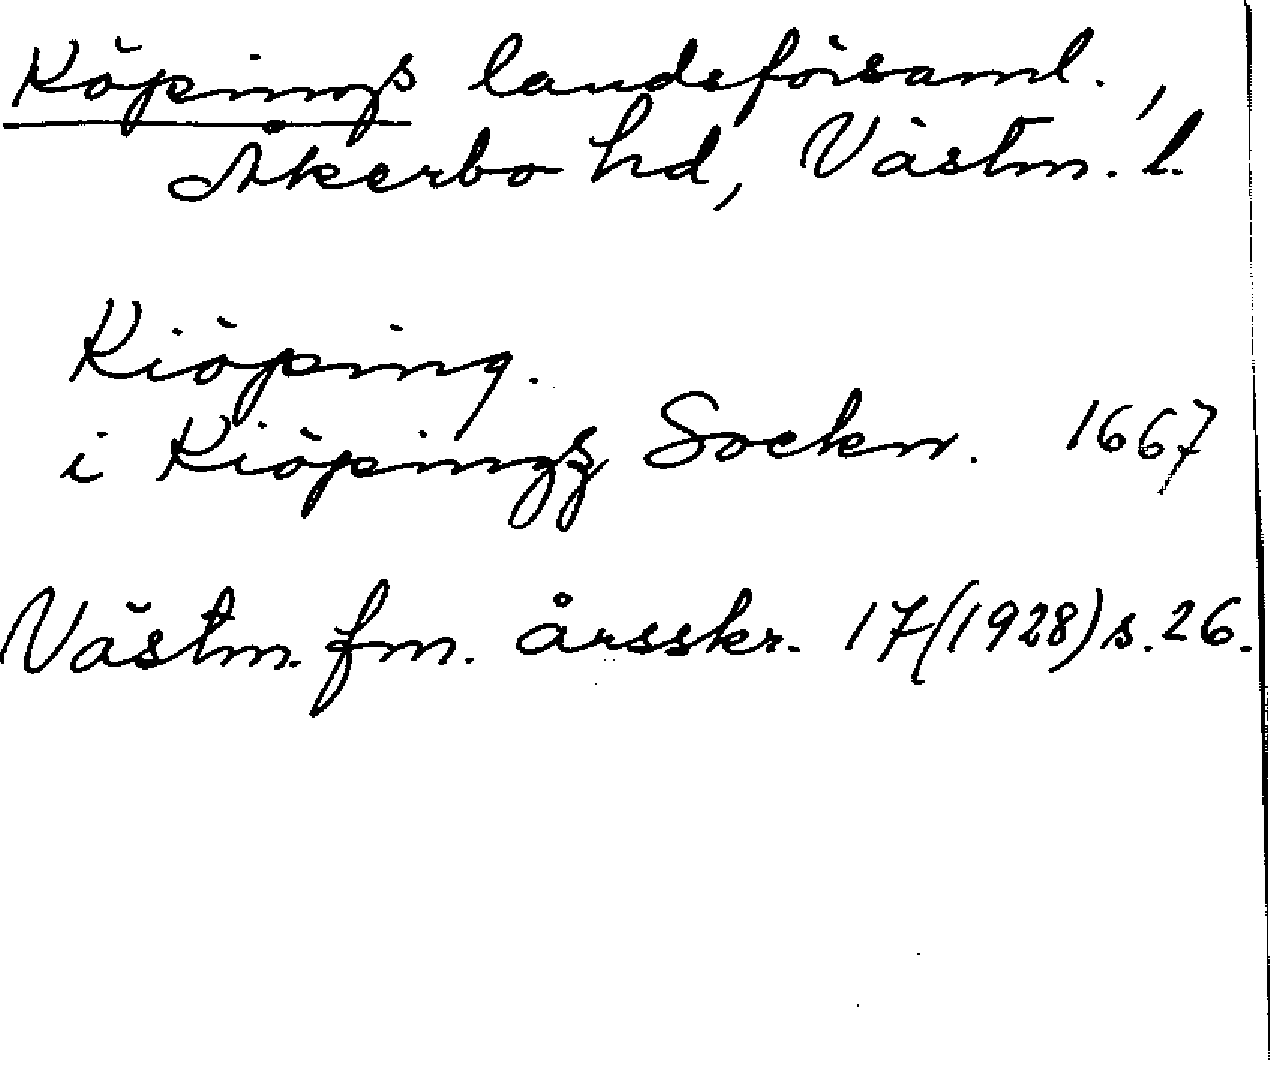 Köpings landsförsaml.,
Åkerbo hd, Västm. l.
Kiöping.
i Kiöpingz Sockn. 1667
Västm. fm. årsskr. 17 (1928) s. 26.